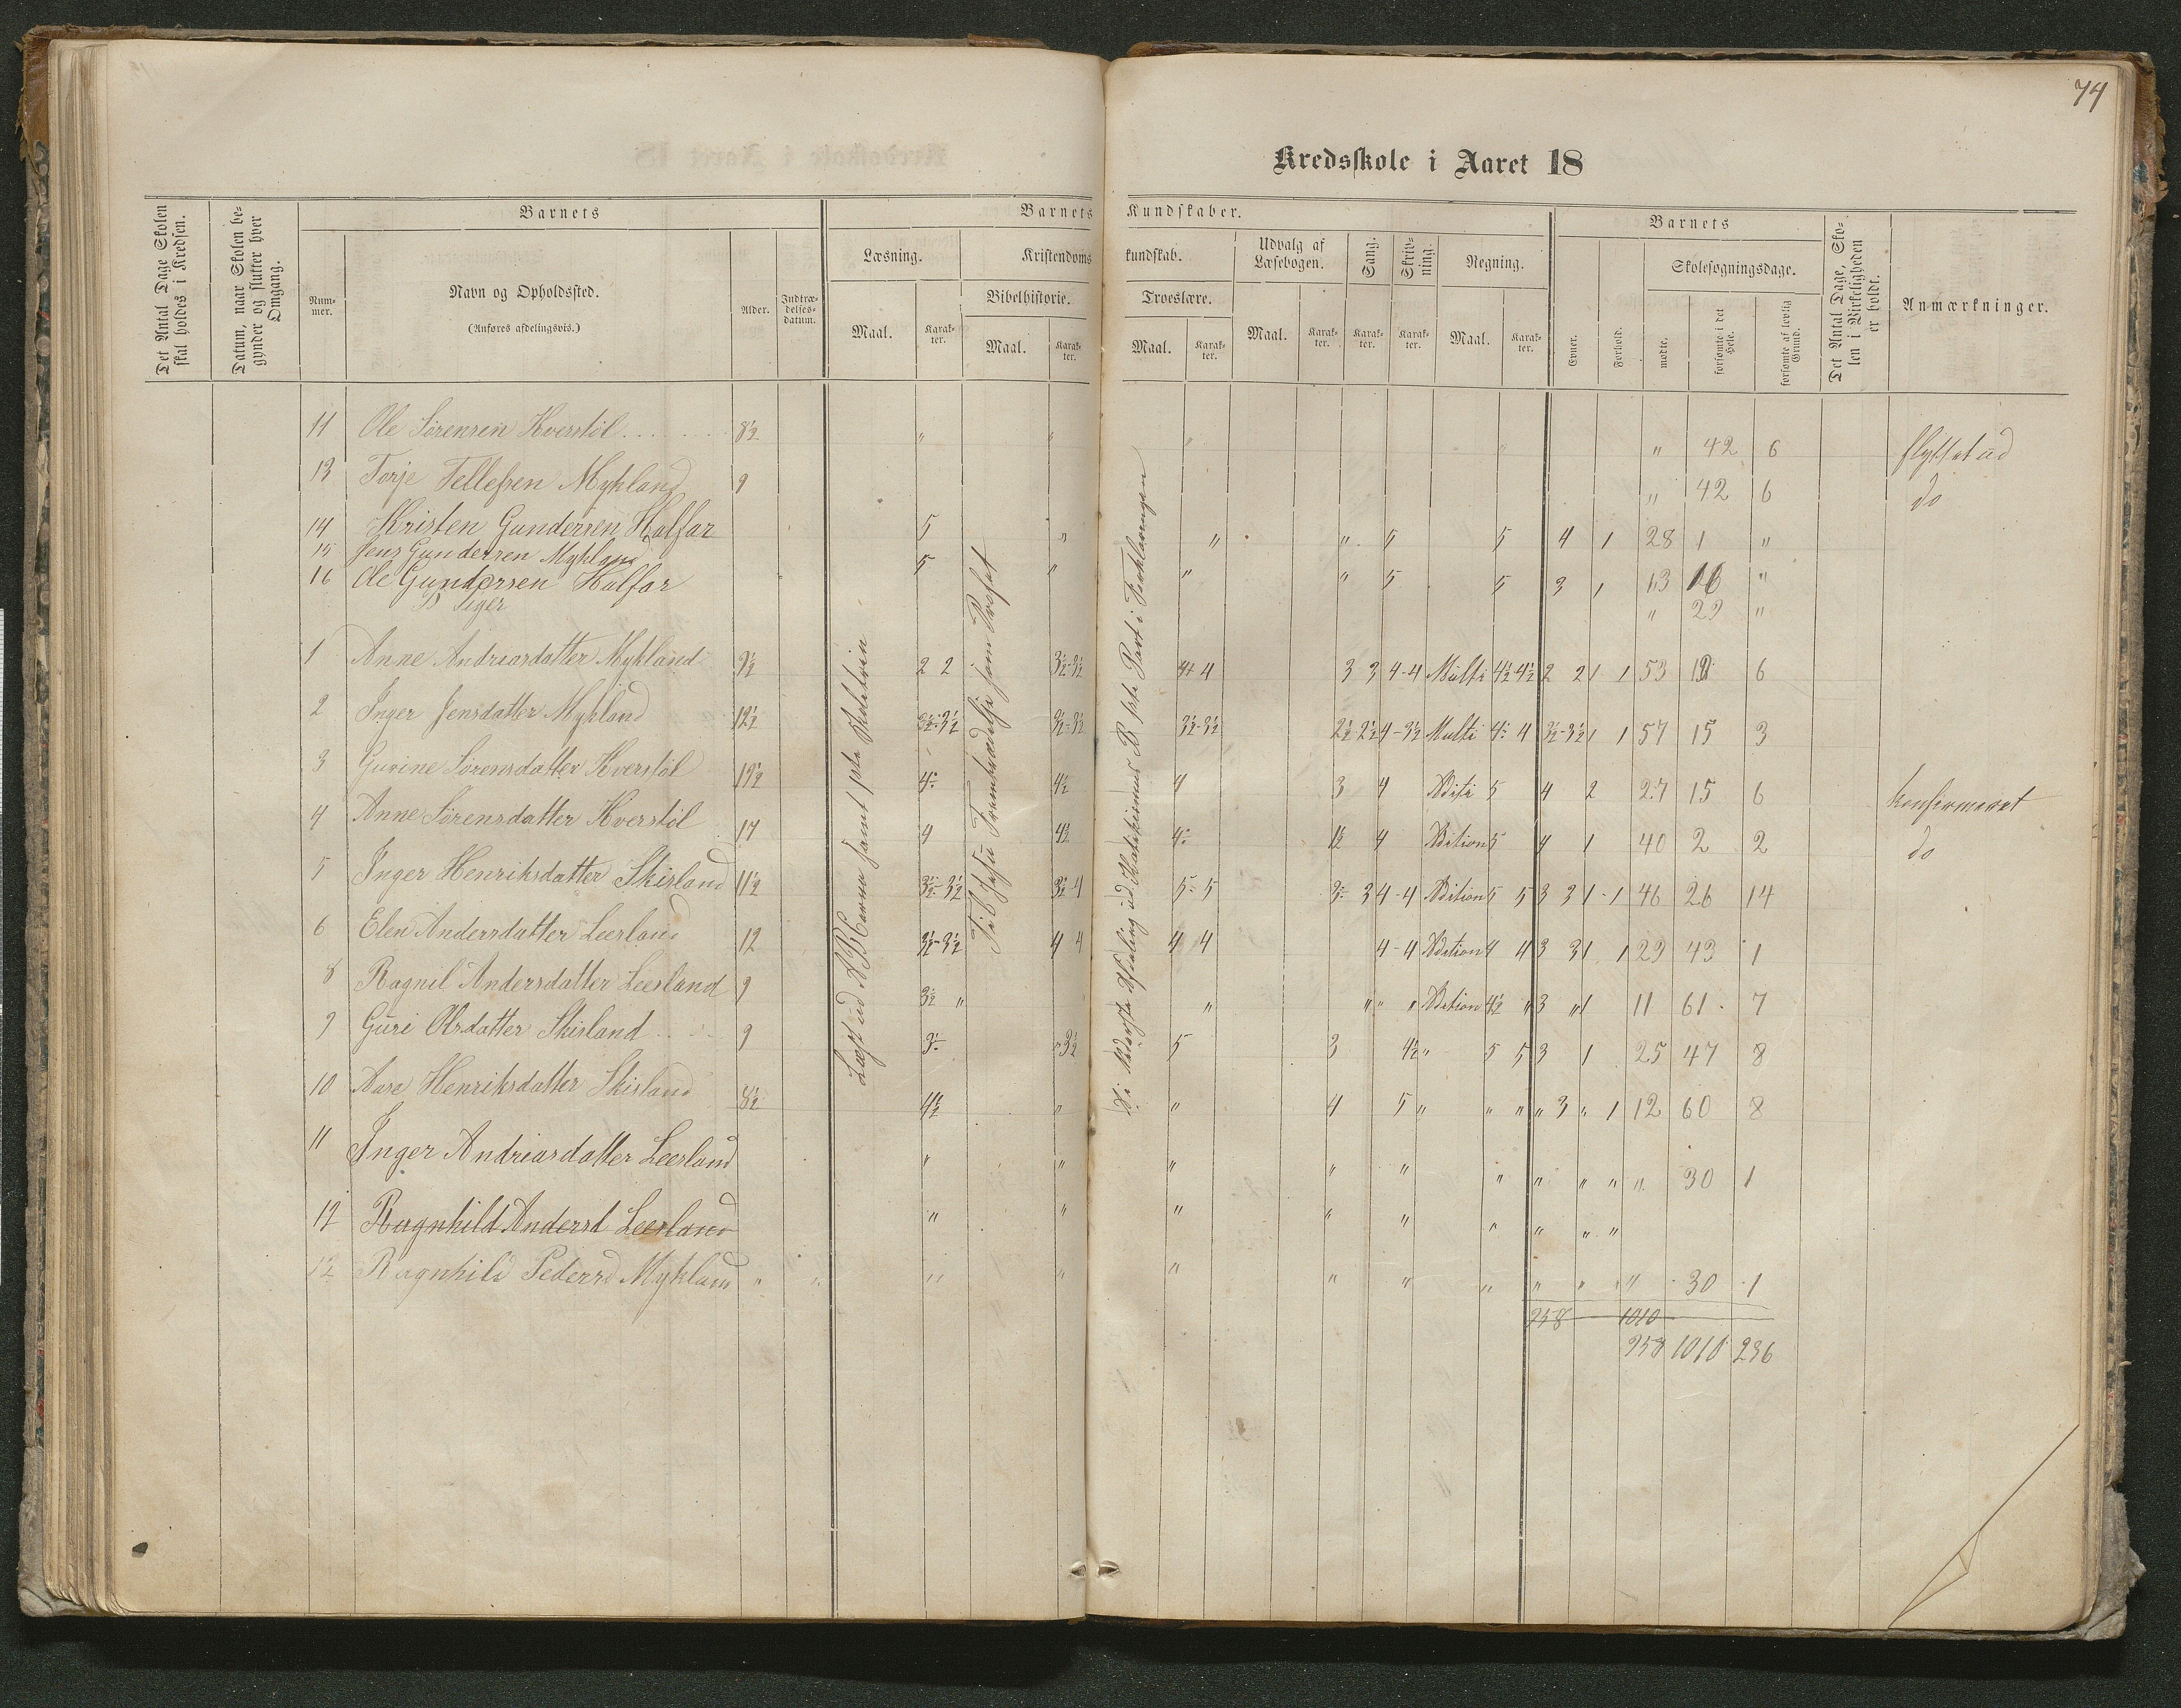 74
Kredsskole i Aaret 18
Det Antal Dage Skolen skal holdes i Kredsen.
Datum, naar Skolen begynder og slutter hver Omgang.
Barnets
Nummer.
Navn og Opholdssted.
(Anføres afdelingsvis.)
Alder.
Indtrædelsesdatum.
Barnets Kundskaber.
Læsning.
Maal.
Karakter.
Kristendomskundskab.
Bibelhistorie.
Maal.
Karakter.
Troeslære.
Maal.
Karakter.
Udvalg af Læsebogen.
Maal.
Karakter.
Sang.
Karakter.
Skrivning.
Karakter.
Regning.
Maal.
Karakter.
Barnets
Evner.
Forhold.
Skolesøgningsdage.
mødte.
forsømte i det Hele.
forsømte af lovlig Grund.
Det Antal Dage, Skolen i Virkeligheden er holdt.
Anmærkninger.
11 Ole Sørensen Hverstöl 8½ " " " " " 42 6 flyttet ud
13 Torje Tellefsen Mykland 9 " 42 6 do
14 Kristen Gundersen Halfar 5 " " " 5 5 4 1 28 1 "
15 Jens Gundersen Mykland 5 " " " 5 5 3 1 13 16 "
16 Ole Gundersen Halfar " 29 "
Piger
1 Anne Andriasdatter Mykland 9½ 2 2 3½-3½ 4+ 4 3 3 4-4 Multi 4½ 4½ 2 2 1 1 53 19 6
2 Inger Jensdatter Mykland 12½ 3½-3½ 3½-3½ 3½-3½ 2½ 2½ 4-3½ Multi 4- 4 3½-3½ 1 1 57 15 3
3 Gurine Sørensdatter Hverstöl 4- 4½ 4 3 4 Aditi 5 4 2 27 15 6 konfirmeret
4 Anne Sørensdatter Hverstöl 4 4½ 4- 1½ 4 Adition 5 4 1 40 2 2 do
5 Inger Henriksdatter Skisland 11½ 3½-3½ 3½-4 5- 5 3- 3 4-4 Adition 5 5 3 3 1-1 46 26 14
6 Elen Andersdatter Leesland 12 3½-3½ 4 4 4 4 4-4 Adition 4 4 3 3 1 1 29 43 1
8 Ragnil Andersdatter Leesland 9 3½ " " " " " Adition 4½ " 3 " 1 11 61 7
9 Guri Olsdatter Skisland 9 3½ " 3½ 5 3 4½ " 5 5 3 1 25 47 8
10 Aase Henriksdatter Skisland 8½ 4½ " " 4 5 " " " " 3 " 1 12 60 8
11 Inger Andriasdatter Leesland " " " " " " " " " " 30 1
12 Ragnhild Andersd Leesland " " " " " " " " "
12 Ragnhild Pedersd Mykland " " " " " " " " " " " 30 1
958 1010
958 1010 236
Læst ud ABCerna samt 1ste Skoletrin
Til Jesu Frembrædelse som Profet